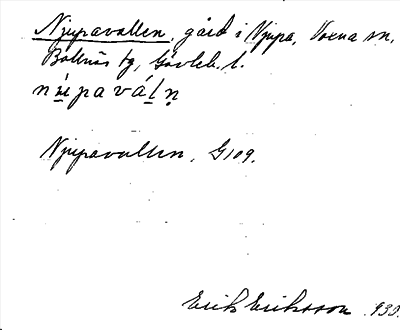 Njupavallen, gård i Njupa, Voxna sn,
Bollnäs tg, Gävleb. l.
Njupavallen, G109.
Erik Eriksson 1935.